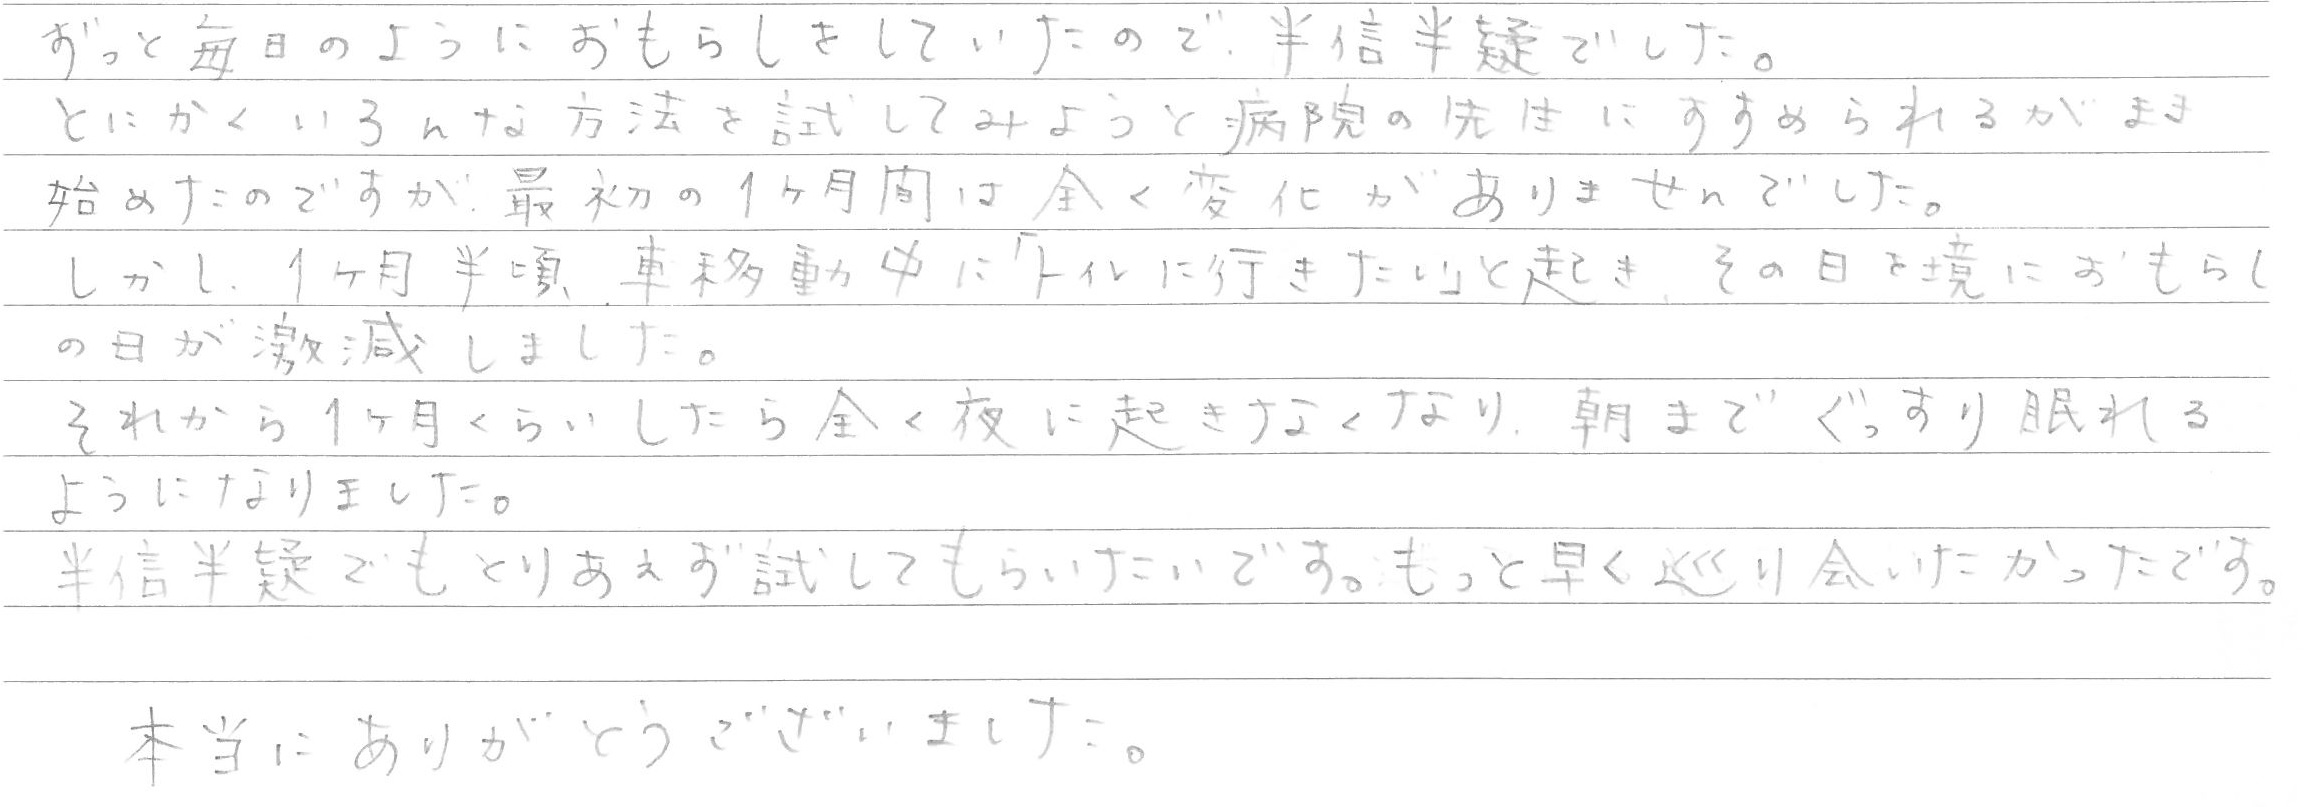 ずっと毎日のようにおもらしをしていたので、半信半疑でした。
とにかくいろんな方法を試してみようと病院の先生にすすめられるがまま
始めたのですが、最初の1ヶ月間は全く変化がありませんでした。
しかし、1ヶ月半頃、車移動中に「トイレに行きたい」と起き、その日を境におもらし
の日が激減しました。
それから1ヶ月くらいしたら全く夜に起きなくなり、朝までぐっすり眠れる
ようになりました。
半信半疑でもとりあえず試してもらいたいです。もっと早く巡り会いたかったです。
本当にありがとうございました。